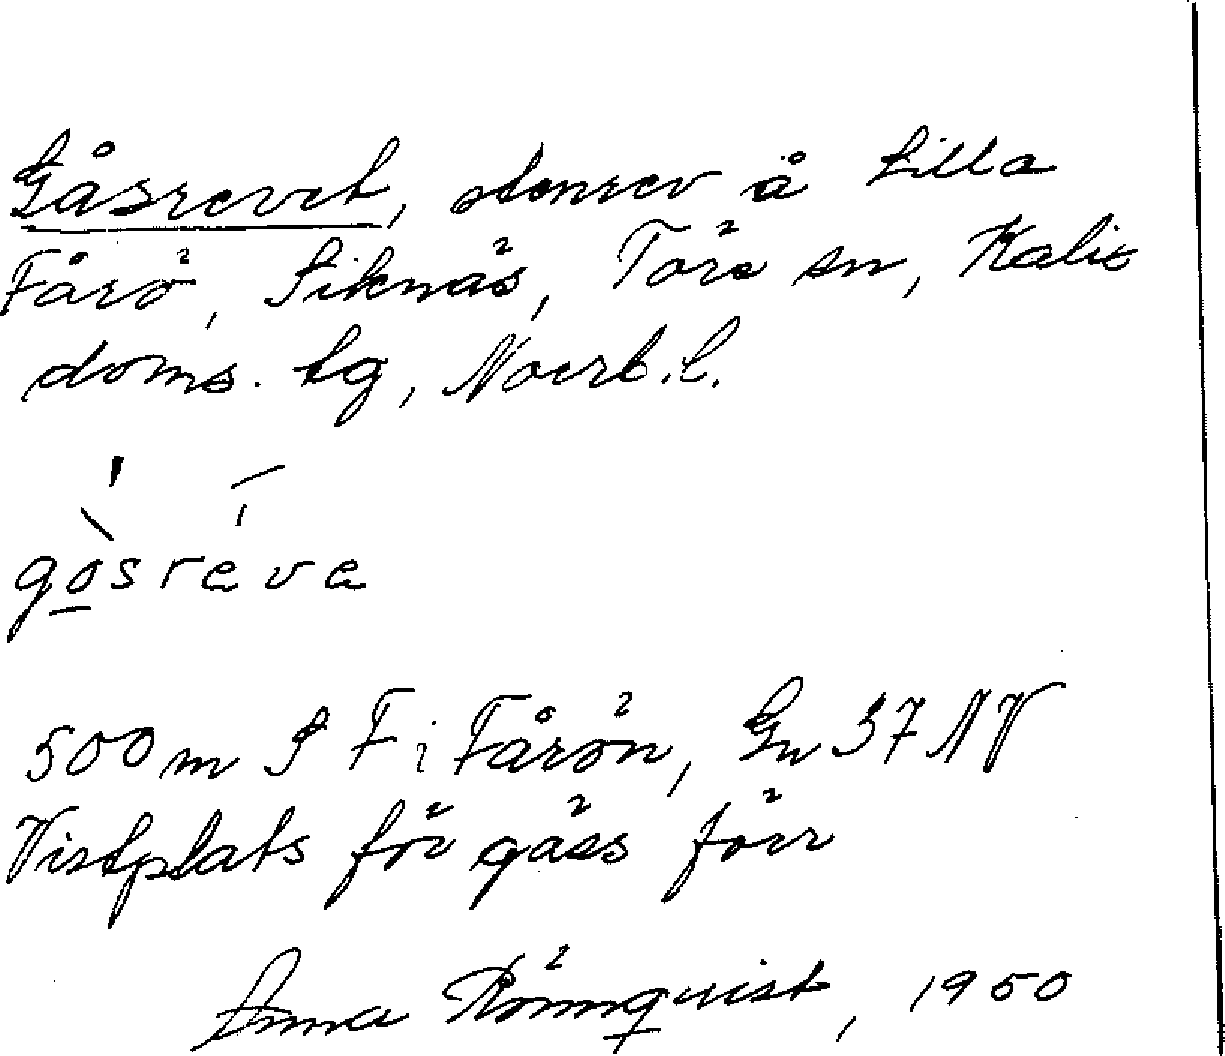 Gåsrevet, stenrev å Lilla
Fårö, Siknäs, Töre sn, Kalix
doms. tg, Norrb. l.
gòsréve
500 m S F i Fårön, Gn 37 NV
Vistplats för gäss förr
Anna Rönnquist, 1950